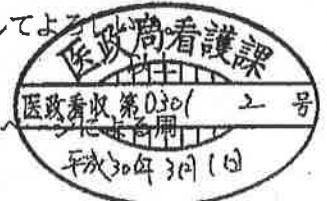 してよろしい
医政局看護課
医政看収 第0301 2 号
による周
平成30年3月1日